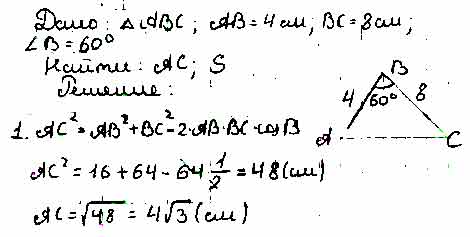 Дано: △ABC; AB=4см; BC=8см;
∠B=60°
Найти: AC; S
Решение:
1. AC²=AB²+BC²-2·AB·BC·cosB
AC²=16+64-64·1/2=48(см)
AC=√48=4√3(см)
B
4 60° 8
A C